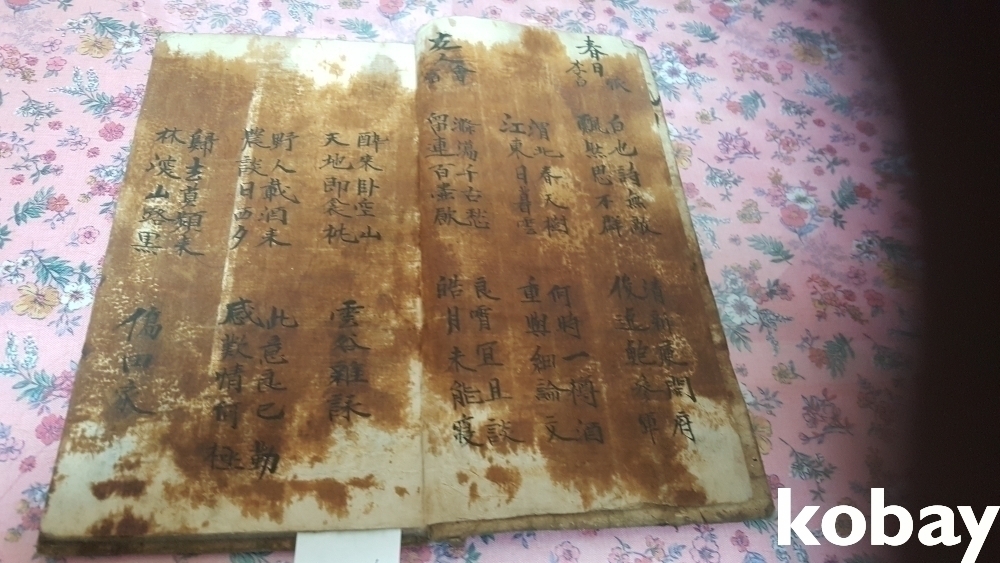 春日憶
李白
白也詩無敵
飄然思不群
清新庾開府
俊逸鮑參軍
渭北春天樹
江東日暮雲
何時一樽酒
重與細論文
友人會
滌蕩千古愁
留連百壺飲
良宵宜且談
皓月未能寢
醉來臥空山
天地即衾枕
雲谷雜詠
野人載酒來
農談日西夕
此意良已勤
感歎情何極
歸去莫頻來
林深山路黑
kobay